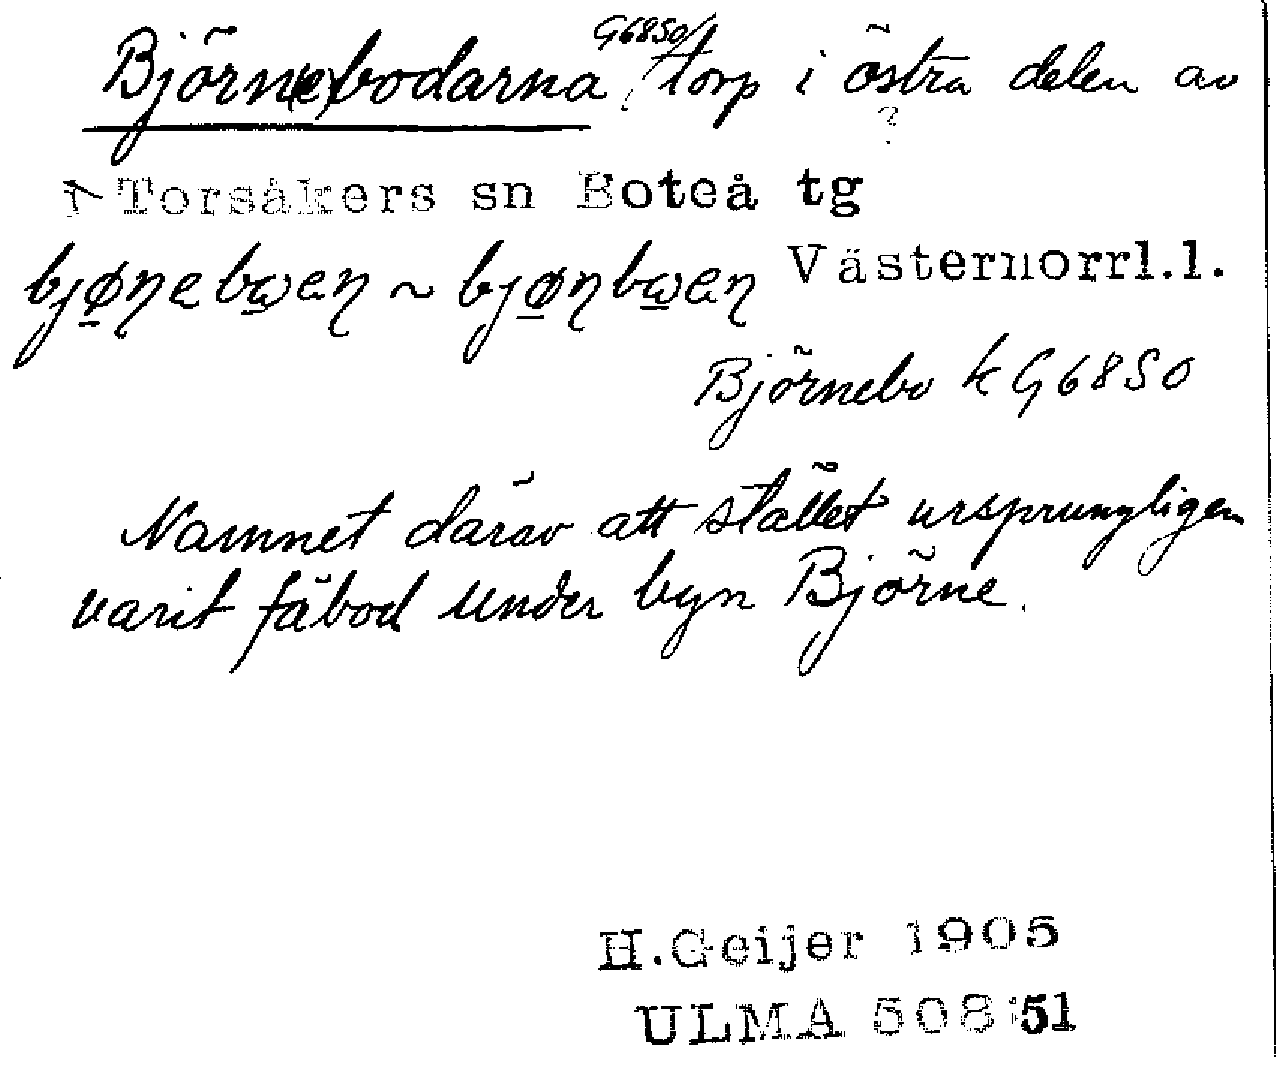 Björn(e)bodarna G6850/ torp i östra delen av
?
Torsåkers sn Boteå tg
Västernorrl.l.
bjønebωen ~ bjønbωen
Björnebo k G6850
Namnet därav att stället ursprungligen
varit fäbod under byn Björne.
H.Geijer 1905
ULMA 508:51